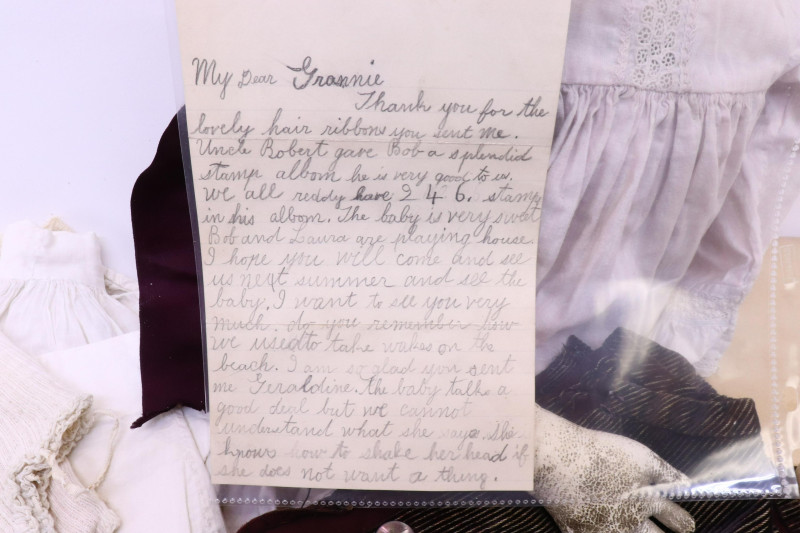 My Dear Grannie
Thank you for the
lovely hair ribbons you sent me.
Uncle Robert gave Bob a splendid
stamp albom he is very good to us.
We all reddy have 246. stamps
in his albom. The baby is very sweet
Bob and Laura are playing house.
I hope you will come and see
us next summer and see the
baby. I want to see you very
much. do you remember how
we used to take wakes on the
beach. I am so glad you sent
me Geraldine. The baby talks a
good deal but we cannot
understand what she says. She
knows how to shake her head if
she does not want a thing.